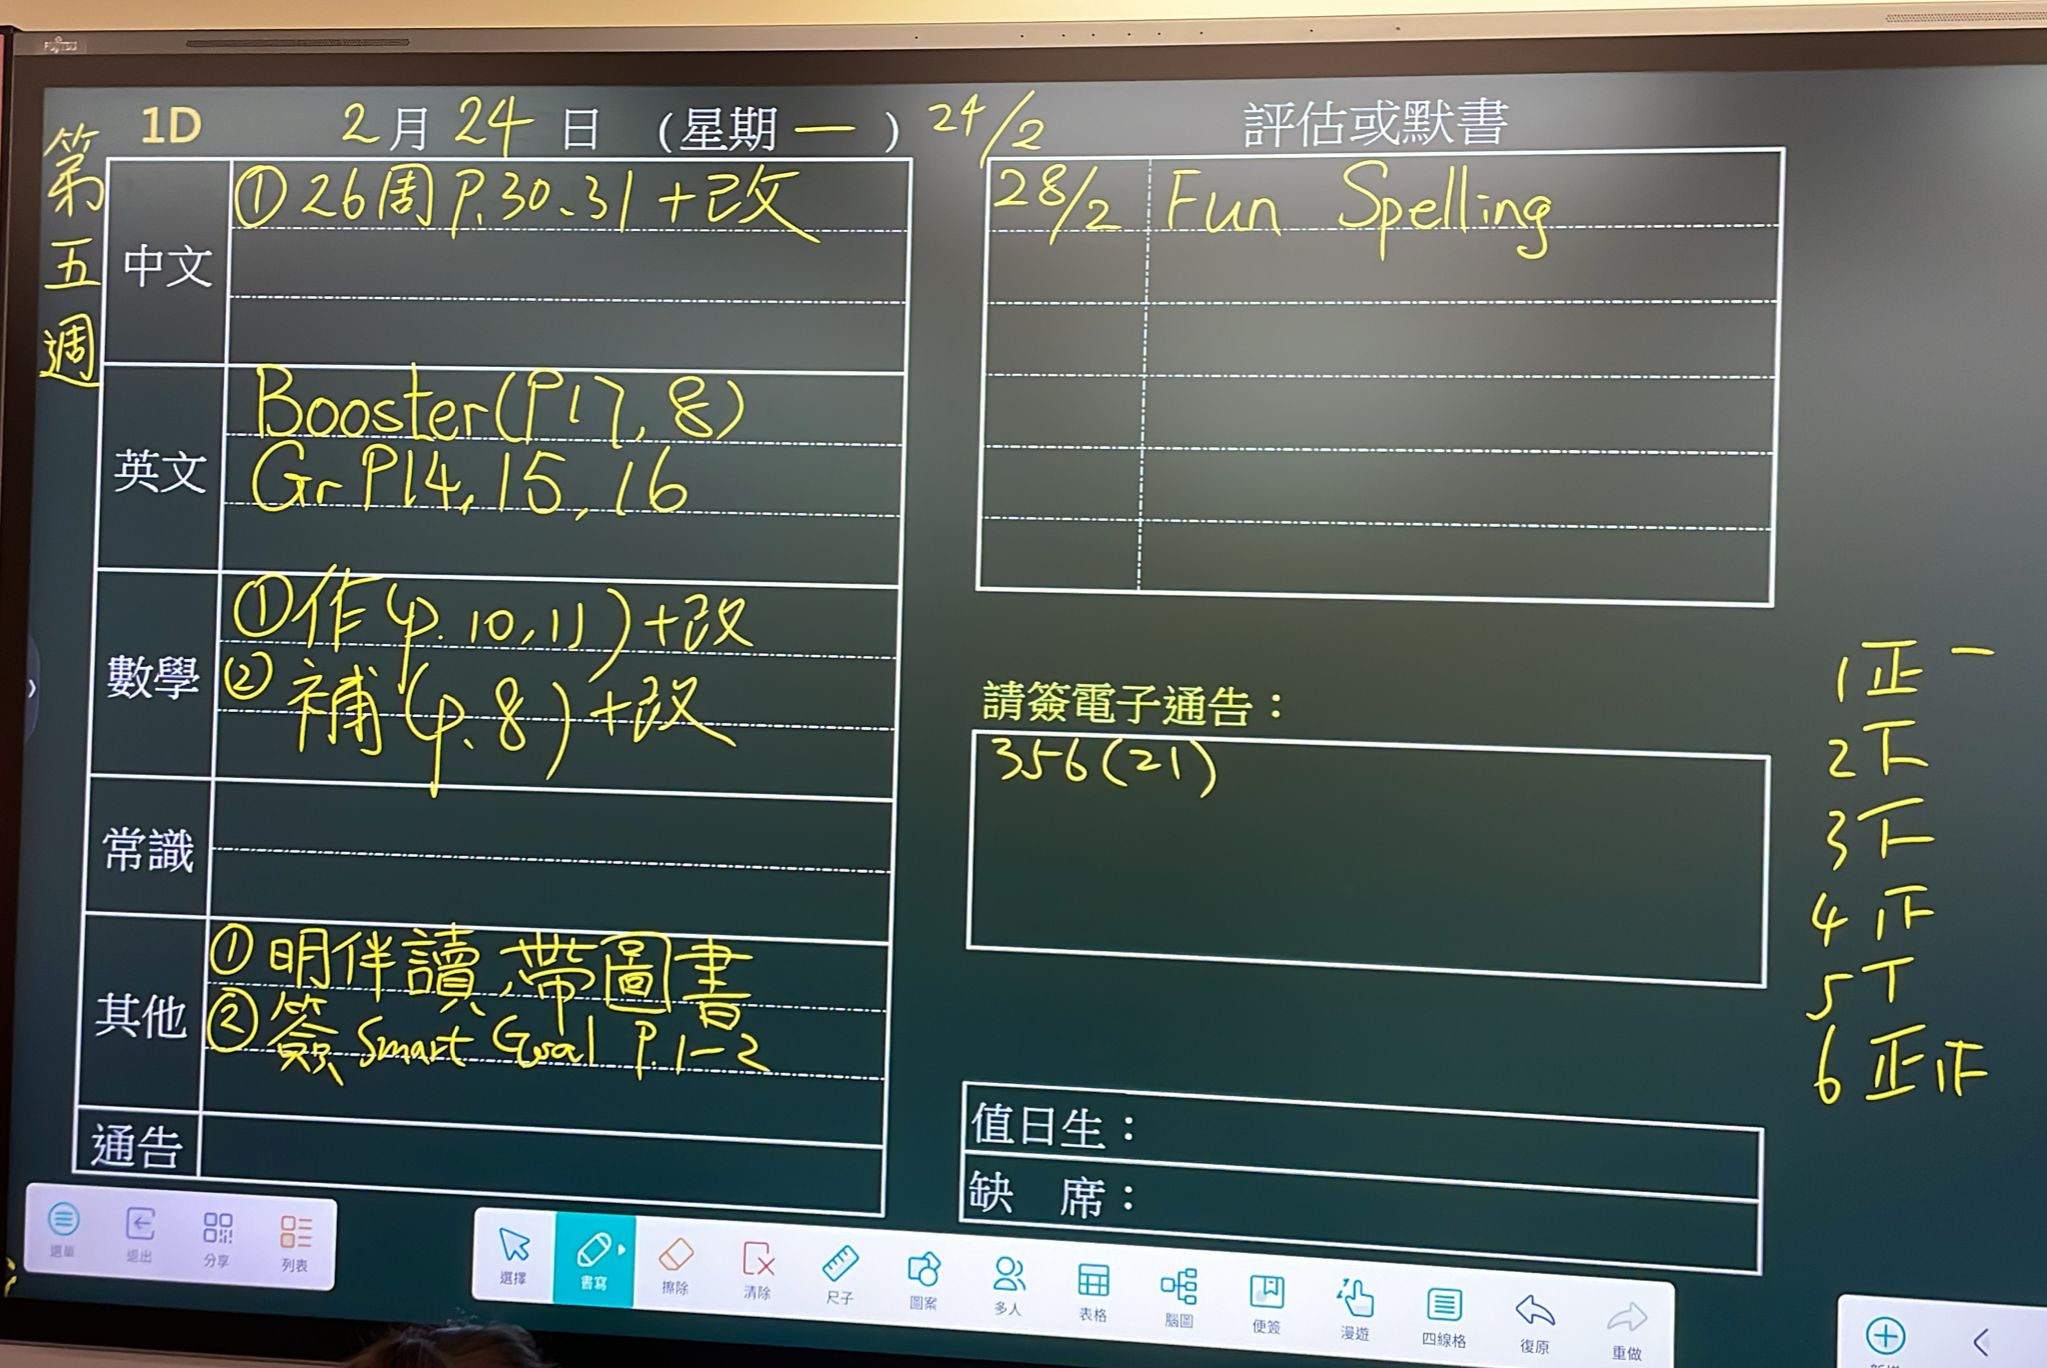 FUJITSU
第五週
1D 2月24日 (星期一) 24/2
中文
①26周P.30、31+改
英文
Booster(P17, 8)
Gr P14, 15, 16
數學
①作(p.10,11)+改
②補(p.8)+改
常識
其他
①明伴讀,帶圖書
②簽Smart Goal P.1-2
通告
評估或默書
28/2 Fun Spelling
請簽電子通告：
356(21)
值日生：
缺 席：
1正一
2下
3下
4正
5丅
6正正
選單 退出 分享 列表
選擇 書寫 擦除 清除 尺子 圖案 多人 表格 腦圖 便簽 漫遊 四線格 復原 重做